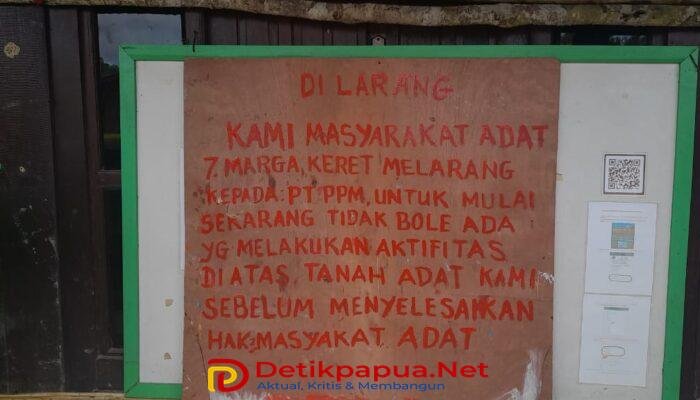 DI LARANG
KAMI MASYARAKAT ADAT
7. MARGA, KERET MELARANG
KEPADA: PT PPM, UNTUK MULAI
SEKARANG TIDAK BOLE ADA
YG MELAKUKAN AKTIFITAS
DI ATAS TANAH ADAT KAMI
SEBELUM MENYELESAIKAN
HAK: MASYAKAT ADAT
Detikpapua.Net
Aktual, Kritis & Membangun